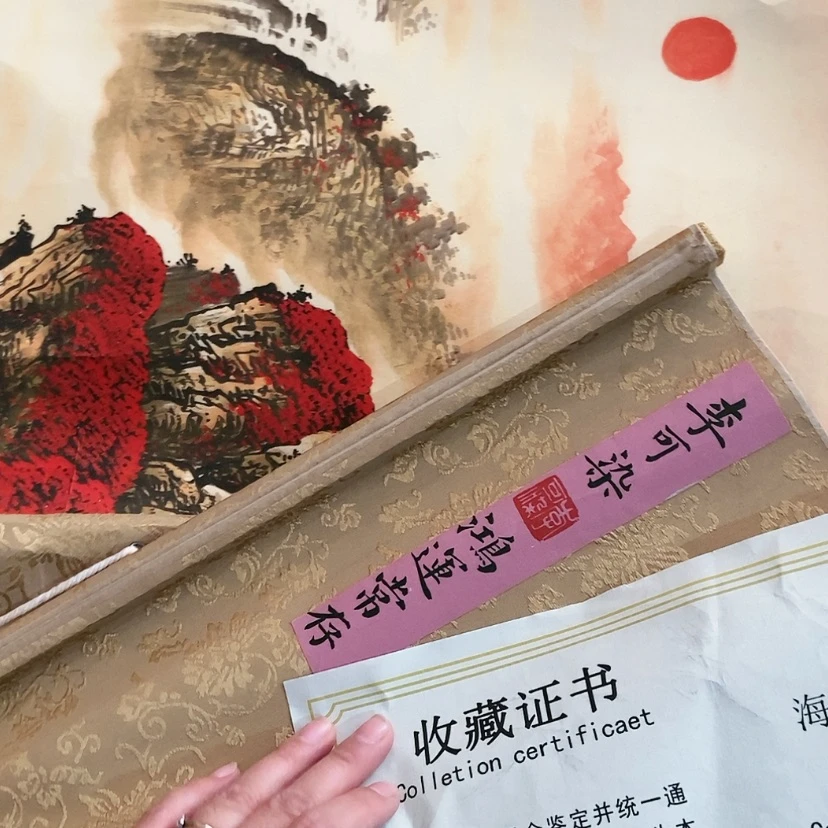 李可染
鴻運常存
收藏证书
Colletion certificaet
鉴定并统一通
海